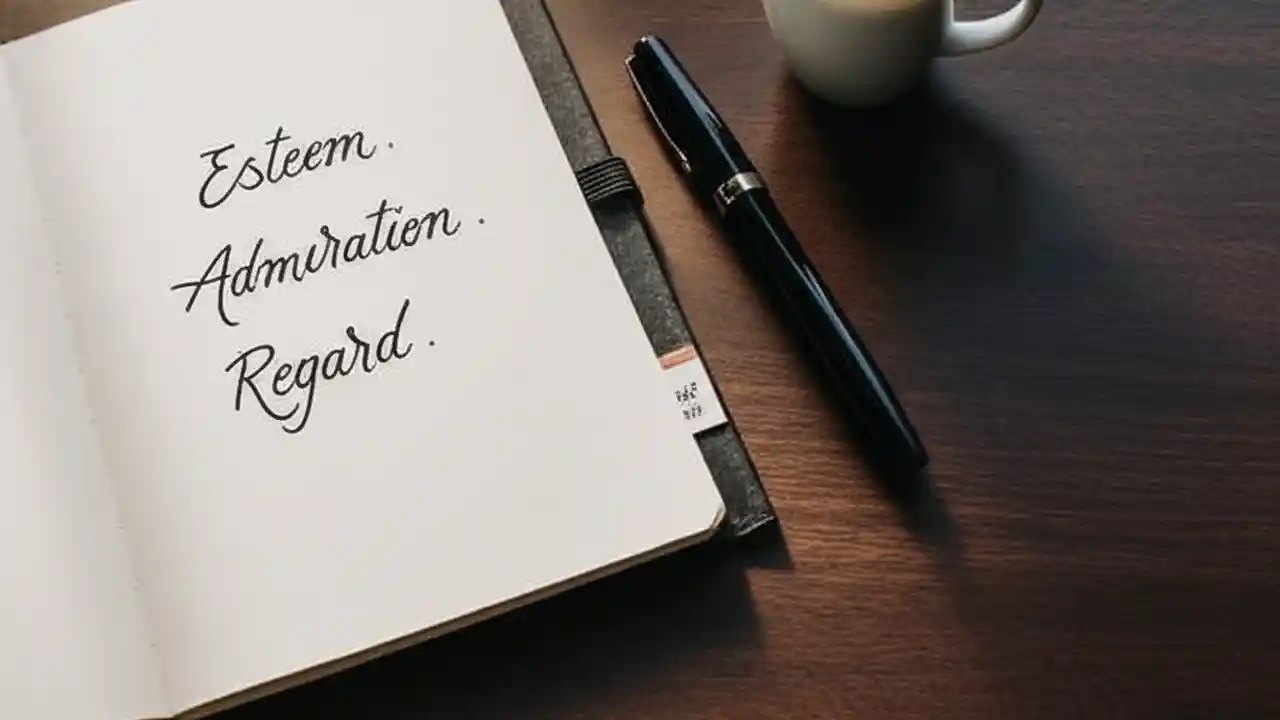 Esteem.
Admiration.
Regard.